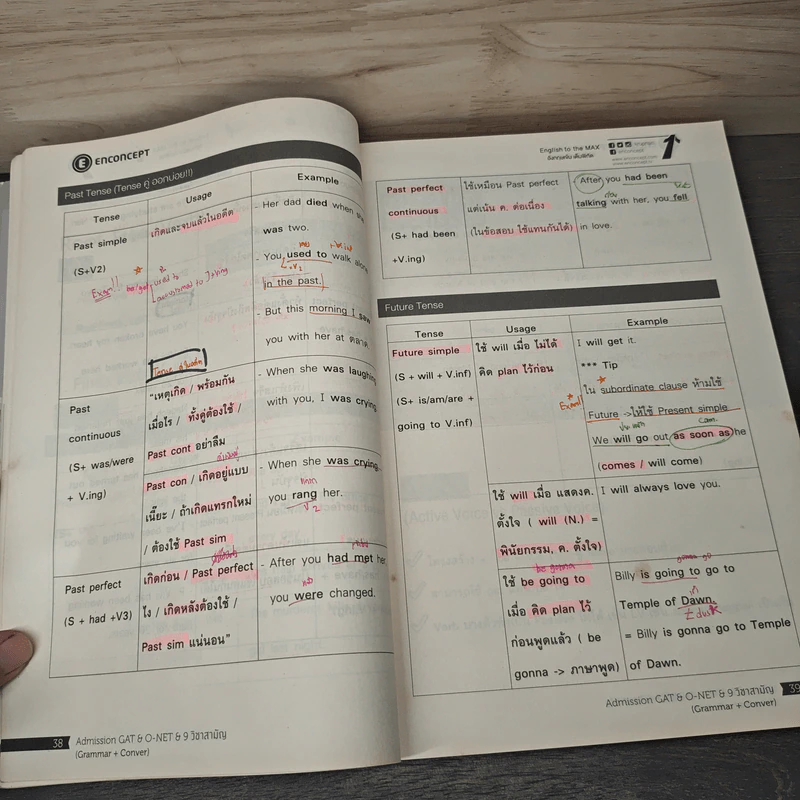 ENCONCEPT
Past Tense (Tense คู่ ออกบ่อย!!)
Tense
Usage
Example
Past simple
(S+V2)
เกิดและจบแล้วในอดีต
- Her dad died when she
was two.
- You used to walk alone
in the past.
- But this morning I saw
you with her at ตลาด
Exam!! be/get used to
accustomed to
+V1
Past
continuous
(S+ was/were
+ V.ing)
"เหตุเกิด / พร้อมกัน
เมื่อไร / ทั้งคู่ต้องใช้ /
Past cont อย่าลืม
Past con / เกิดอยู่แบบ
เนี๊ยะ / ถ้าเกิดแทรกใหม่
/ ต้องใช้ Past sim
- When she was laughing
with you, I was crying.
- When she was crying,
you rang her.
V2
Past perfect
(S + had +V3)
เกิดก่อน / Past perfect
ไง / เกิดหลังต้องใช้ /
Past sim แน่นอน"
- After you had met her
you were changed.
38
Admission GAT & O-NET & 9 วิชาสามัญ
(Grammar + Conver)
English to the MAX
enconcept
1
Past perfect
continuous
(S+ had been
+V.ing)
ใช้เหมือน Past perfect
แต่เน้น ค. ต่อเนื่อง
(ในข้อสอบ ใช้แทนกันได้)
After you had been
talking with her, you fell
in love.
Future Tense
Tense
Usage
Example
Future simple
(S + will + V.inf)
(S+ is/am/are +
going to V.inf)
ใช้ will เมื่อ ไม่ได้
คิด plan ไว้ก่อน
Exam!!
I will get it.
*** Tip
ใน subordinate clause ห้ามใช้
Future ->ให้ใช้ Present simple
We will go out as soon as he
(comes / will come)
ใช้ will เมื่อ แสดงค.
ตั้งใจ ( will (N.) =
พินัยกรรม, ค. ตั้งใจ)
I will always love you.
be gonna
ใช้ be going to
เมื่อ คิด plan ไว้
ก่อนพูดแล้ว ( be
gonna -> ภาษาพูด)
gonna go
Billy is going to go to
Temple of Dawn.
≠ dusk
= Billy is gonna go to Temple
of Dawn.
Admission GAT & O-NET & 9 วิชาสามัญ
39
(Grammar + Conver)